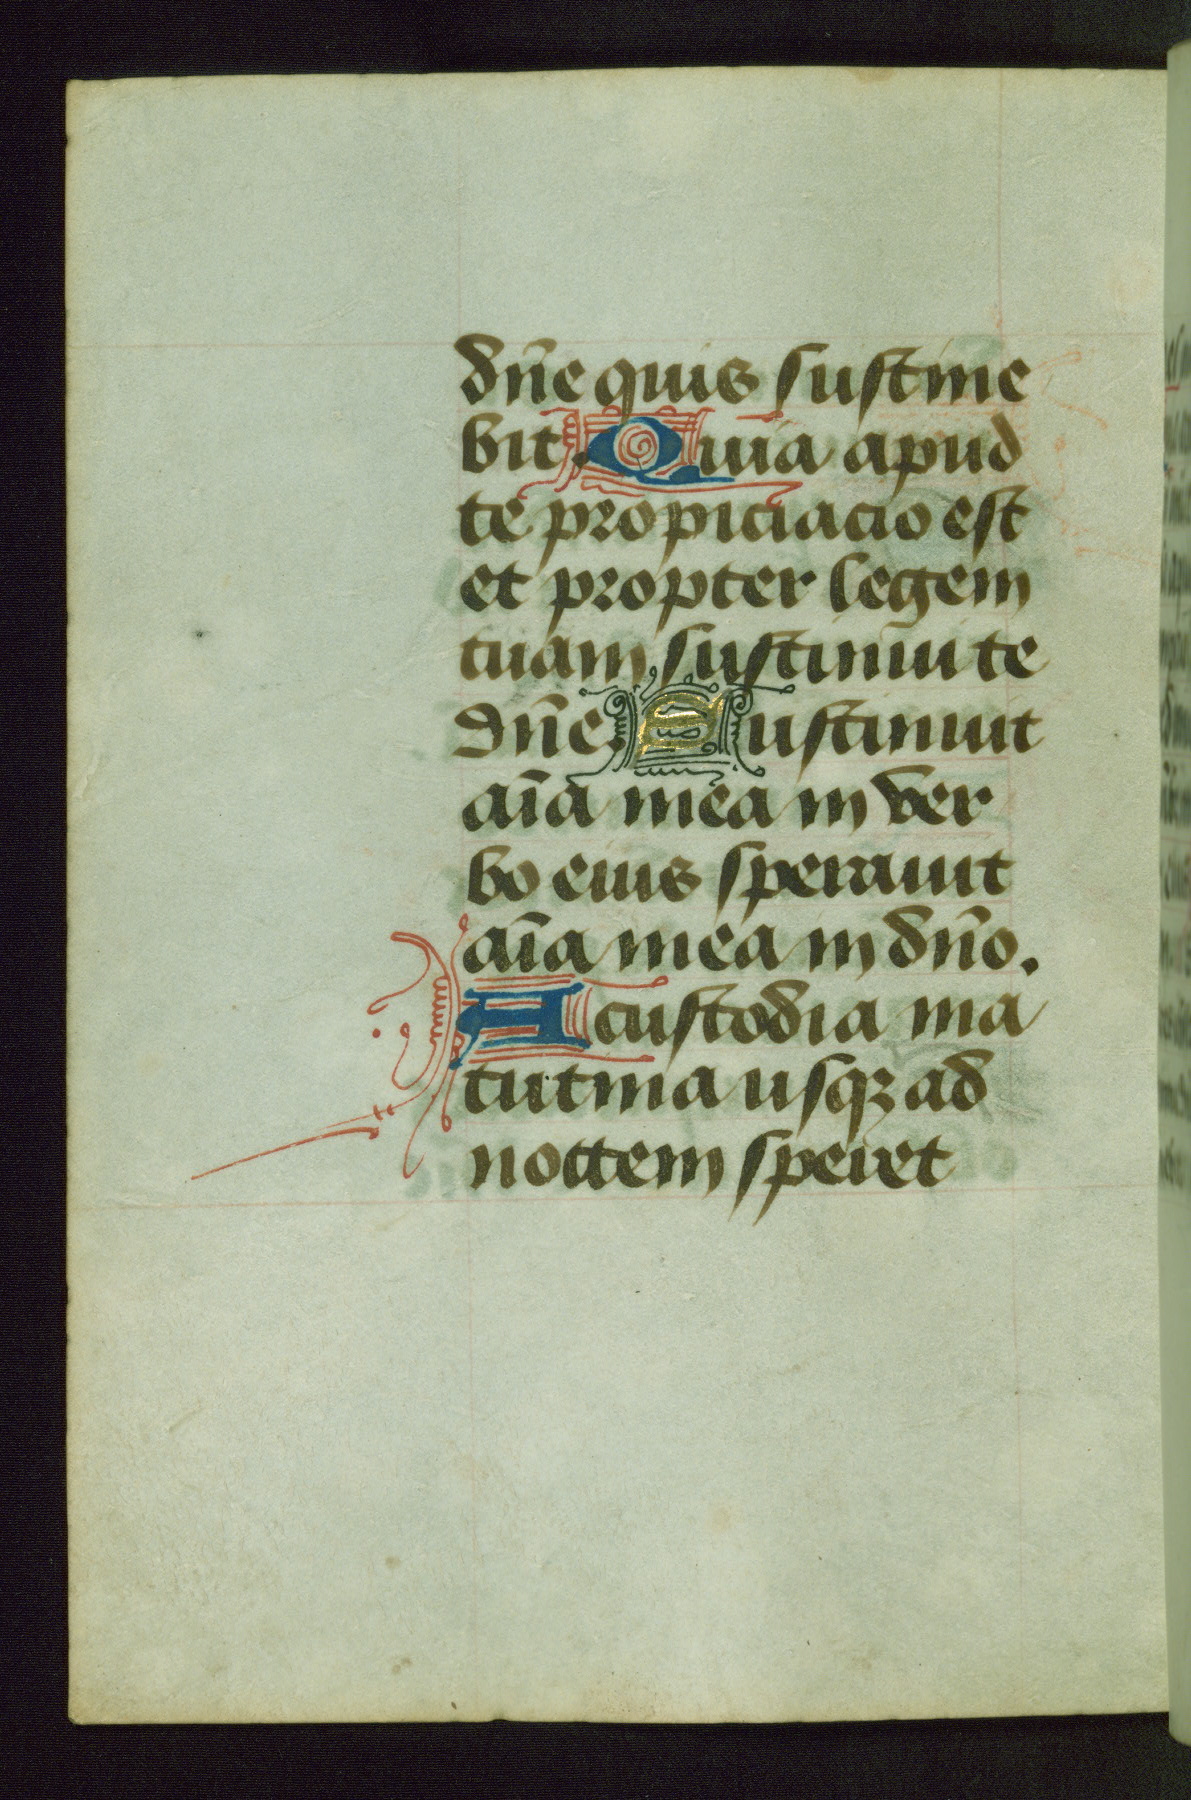 dn̄e quis sustine
bit. Quia apud
te propiciacio est
et propter legem
tuam sustinui te
dn̄e. Sustinuit
aīa mea in ver
bo eius sperauit
aīa mea in dn̄o.
A custodia ma
tutina usqꝫ ad
noctem speret